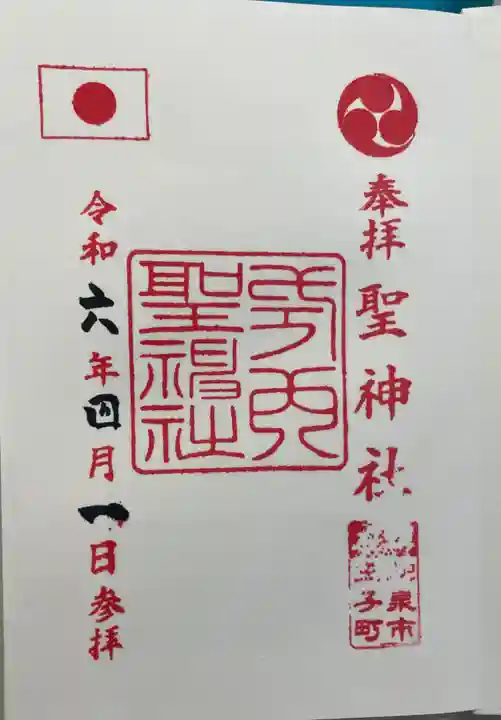 奉拝
聖神社
泉市
子町
聖神社
令和六年四月一日参拝